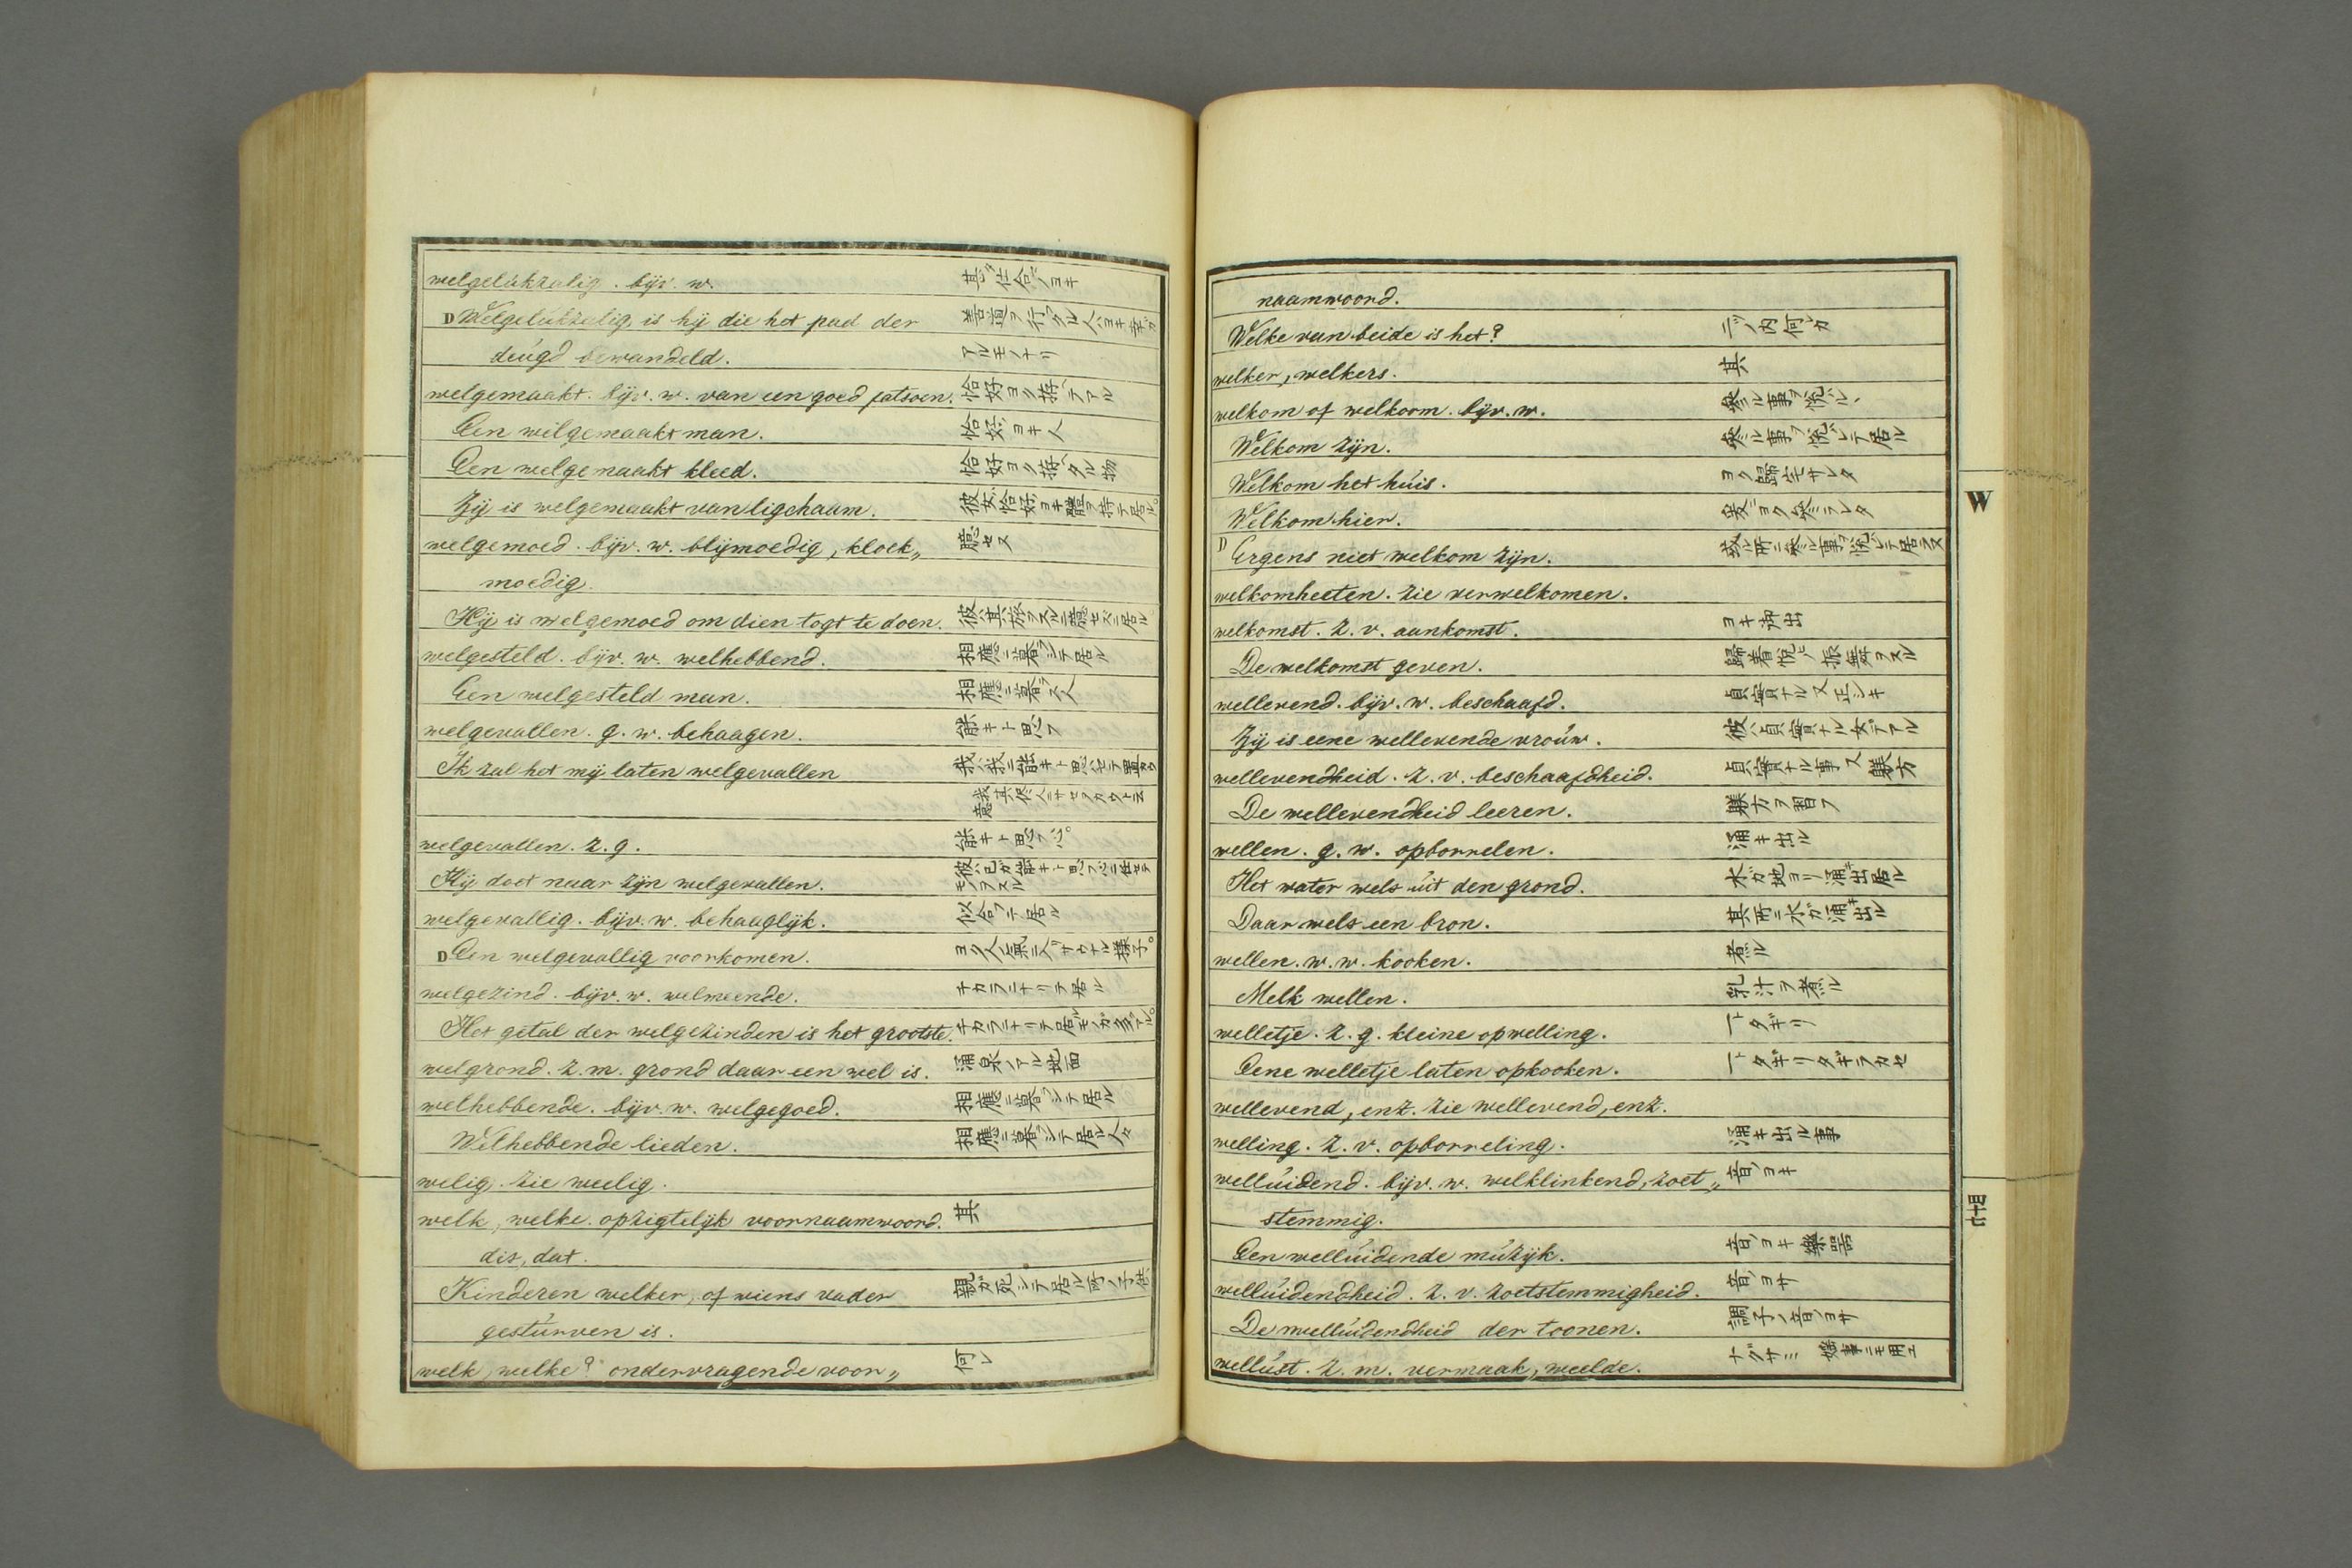 welgelúkzalig. bijv. w. 甚ダ仕合ノヨキ
D Welgelúkzalig is hij die het pad der 善道ヲ行フタル人ハヨキ幸ガ
deúgd bewandeld. アルモノナリ
welgemaakt. bijv. w. van een goed fatsoen. 恰好ヨク拵ヘテアル
Een wilgemaakt man. 恰好ノヨキ人
Een welgemaakt kleed. 恰好ヨク拵ヘタル物
Zij is welgemaakt van ligchaam. 彼女ハ恰好ノヨキ體ヲ持テ居ル。
welgemoed. bijv. w. blijmoedig, kloek„ 臆セヌ
moedig.
Hij is welgemoed om dien togt te doen. 彼ハ其旅ヲスルニ臆セズニ居ル
welgesteld. bijv. w. welhebbend. 相應ニ暮シテ居ル
Een welgesteld man. 相應ニ暮ス人
welgevallen. g. w. behaagen. 能キト思フ
Ik zal het mij laten welgevallen 我ハ我ニ能キト思ハセテ置カウ
welgevallen. z. g. 能キト思フ心。
Hij doet naar zijn welgevallen. 彼ハ己ガ能キト思フ心ニ任セテモノヲスル
welgevallig. bijv. w. behaaglijk. 似合フテ居ル
D Een welgevallig voorkomen. ヨク人氣ニ入リサウナル様子。
welgezind. bijv. w. welmeende. チカラニナリテ居ル
Het getal der welgezinden is het grootste. チカラニナリテ居ルモノガ多テアル。
welgrond. z. m. grond daar een wel is. 涌泉ノアル地面
welhebbende. bijv. w. welgegoed. 相應ニ暮シテ居ル
Welhebbende lieden. 相應ニ暮シテ居ル人々
welig. zie weelig.
welk, welke. opzigtelijk voornaamwoord. 其
dis, dat.
Kinderen welker, of wiens vader 親ガ死シテ居ル所ノ子供
gestúrven is.
welk, welke? ondervragende voor„ 何レ
naamwoord.
Welke van beide is het? 二ツノ内何レカ
welker, welkers. 其
welkom of welkoom. bijv. w. 參ル事ヲ悦バル、
Welkom zijn. 參ル事ヲ悦バレテ居ル
Welkom het húis. ヨク歸宅サレタ
Welkom hier. 爰ニヨク參ラレタ
D Ergens niet welkom zijn. 或ル所ニ參ル事ヲ悦バレテ居ラヌ
welkomheeten. zie verwelkomen.
welkomst. z. v. aankomst. ヨキ御出
De welkomst geven. 歸着悦ノ振舞ヲスル
wellevend. bijv. w. beschaafd. 貞實ナル又正シキ
Zij is eene wellevende vroúw. 彼ハ貞實ナル女デアル
wellevendheid. z. v. beschaafdheid. 貞實ナル事又躾方
De wellevendheid leeren. 躾方ヲ習フ
wellen. g. w. opborrelen. 涌キ出ル
Het water wels úit den grond. 水ガ地ヨリ涌キ出居ル
Daar wels een bron. 其所ニ水ガ涌キ出ル
wellen. w. w. kooken. 煮ル
Melk wellen. 乳汁ヲ煮ル
welletje. z. g. kleine opwelling. 一トタギリ
Eene welletje laten opkooken. 一トタギリタギラカセ
wellevend, enz. zie wellevend, enz.
welling. z. v. opborreling. 涌キ出ル事
wellúidend. bijv. w. welklinkend, zoet„ 音ノヨキ
stemmig.
Een wellúidende múzijk. 音ノヨキ樂器
wellúidendheid. z. v. zoetstemmigheid. 音ノヨサ
De wellúidendheid der toonen. 調子ノ音ノヨサ
wellúst. z. m. vermaak, weelde. ナグサミ 婬事ニモ用ユ
W